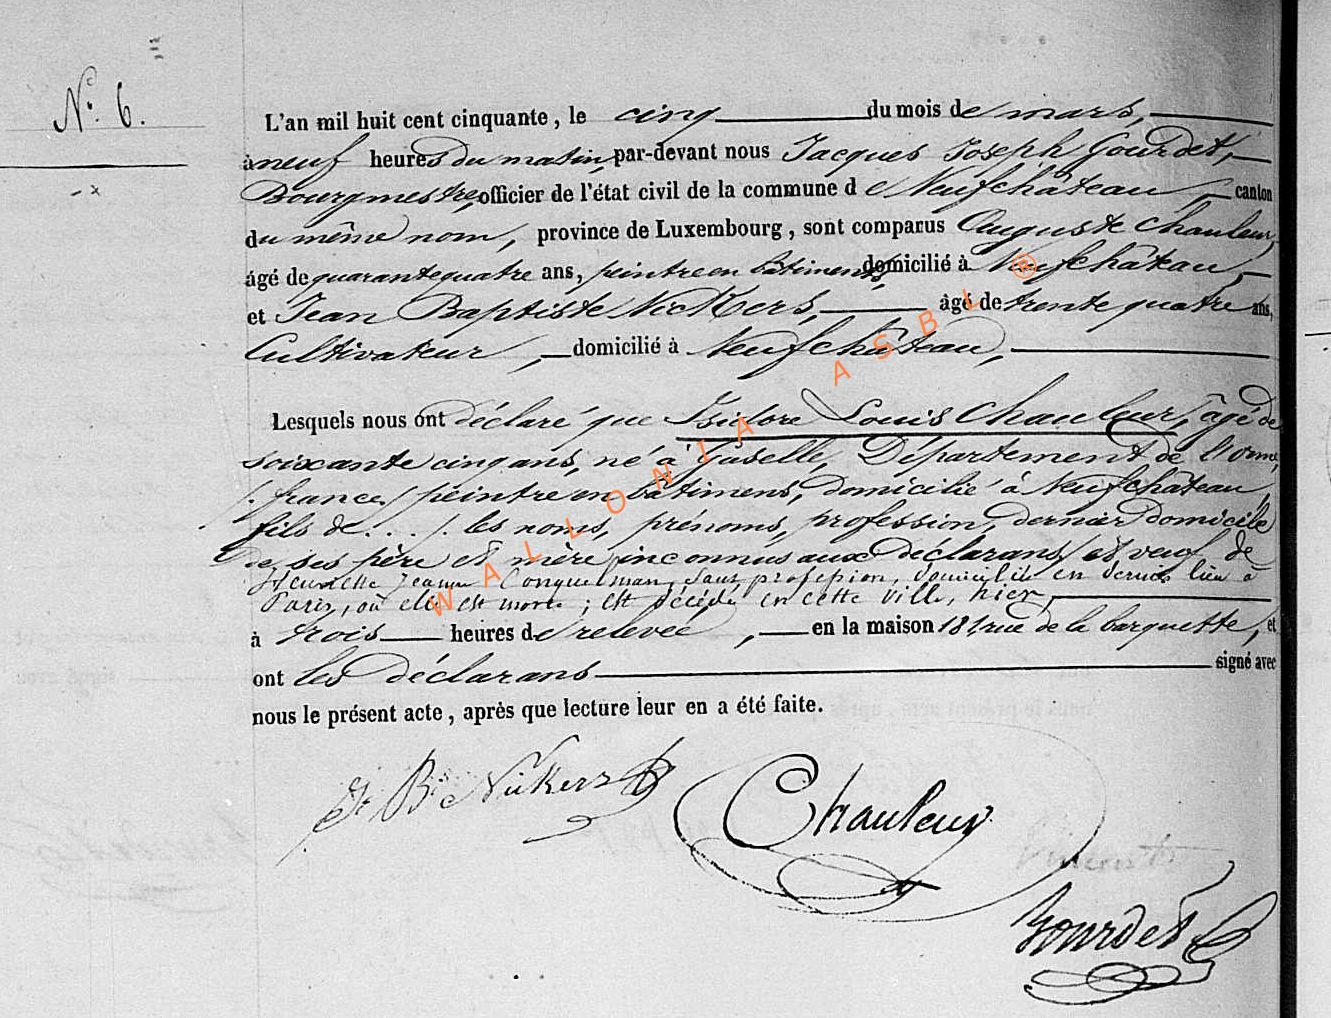 N° 6.
L'an mil huit cent cinquante, le cinq du mois de mars,
à neuf heures du matin, par-devant nous Jacques Joseph Gourdet,
Bourgmestre, officier de l'état civil de la commune de Neufchâteau, canton
du même nom, province de Luxembourg, sont comparus Auguste Chauleur,
âgé de quarante quatre ans, peintre en bâtiments, domicilié à Neufchâteau,
et Jean Baptiste Nickers, âgé de trente quatre ans,
Cultivateur, domicilié à Neufchâteau,
Lesquels nous ont déclaré que Isidore Louis Chauleur, âgé de
soixante cinq ans, né à Département de l'orne,
(france) peintre en bâtimens, domicilié à Neufchâteau,
fils de . . . (les noms, prénoms, profession, dernier domicile
de ses père et mère inconnus aux déclarans) et veuf de
Jeanne sans profession, domiciliée en dernier lieu à
Paris, où elle est morte ; est décédé en cette ville, hier,
à trois heures de relevée, en la maison 181, rue de la barquette, et
ont les déclarans signé avec
nous le présent acte, après que lecture leur en a été faite.
Jn Bte Nickers
Chauleur
Gourdet
WALLONIA ASBL ®